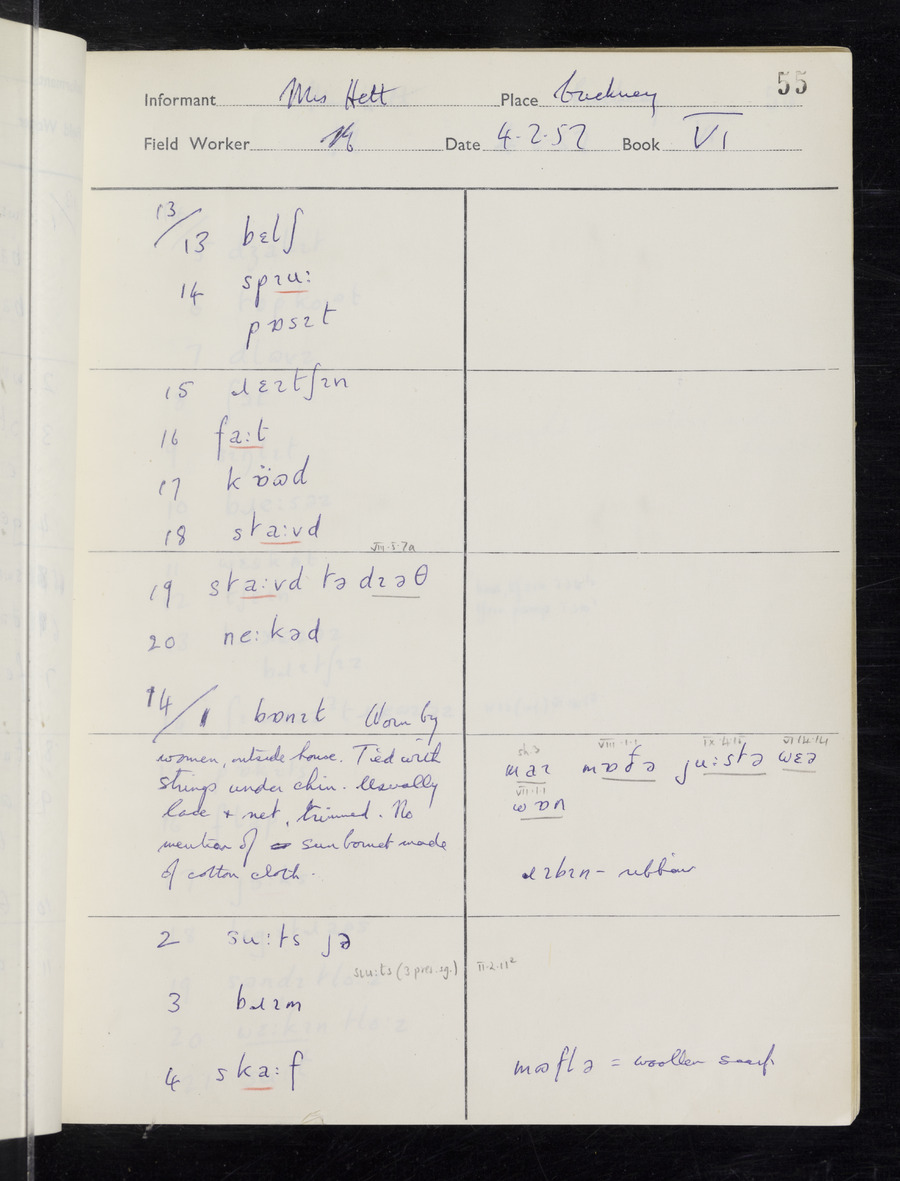 55
Informant Mrs Hett Place Buckney
Field Worker Date 4-2-57 Book VI
13/13 bɛlʃ
14 spɪu:
pɒsɪt
15 ɹɛɪtʃɪn
16 fa:t
17 kɒ̈ɷd
18 sta:vd
VIII·5·7a
19 sta:vd tə dɪəθ
20 ne:kəd
14/1 bɒnɪt Worn by
women, outside house. Tied with
strings under chin. Usually
lace & net, trimmed. No
mention of sun bonnet made
of cotton cloth.
sh 3 VIII·1·1 IX·4·15 VI·14·14
maɪ mɷðə ju:stə wɛə
VII·1·1
wɒn
ɹɪbɪn - ribbon
2 su:ts jə
sɪu:ts (3 pres. sg.) II·2·11²
3 bɹɪm
4 ska:f
mɷflə = woollen scarf